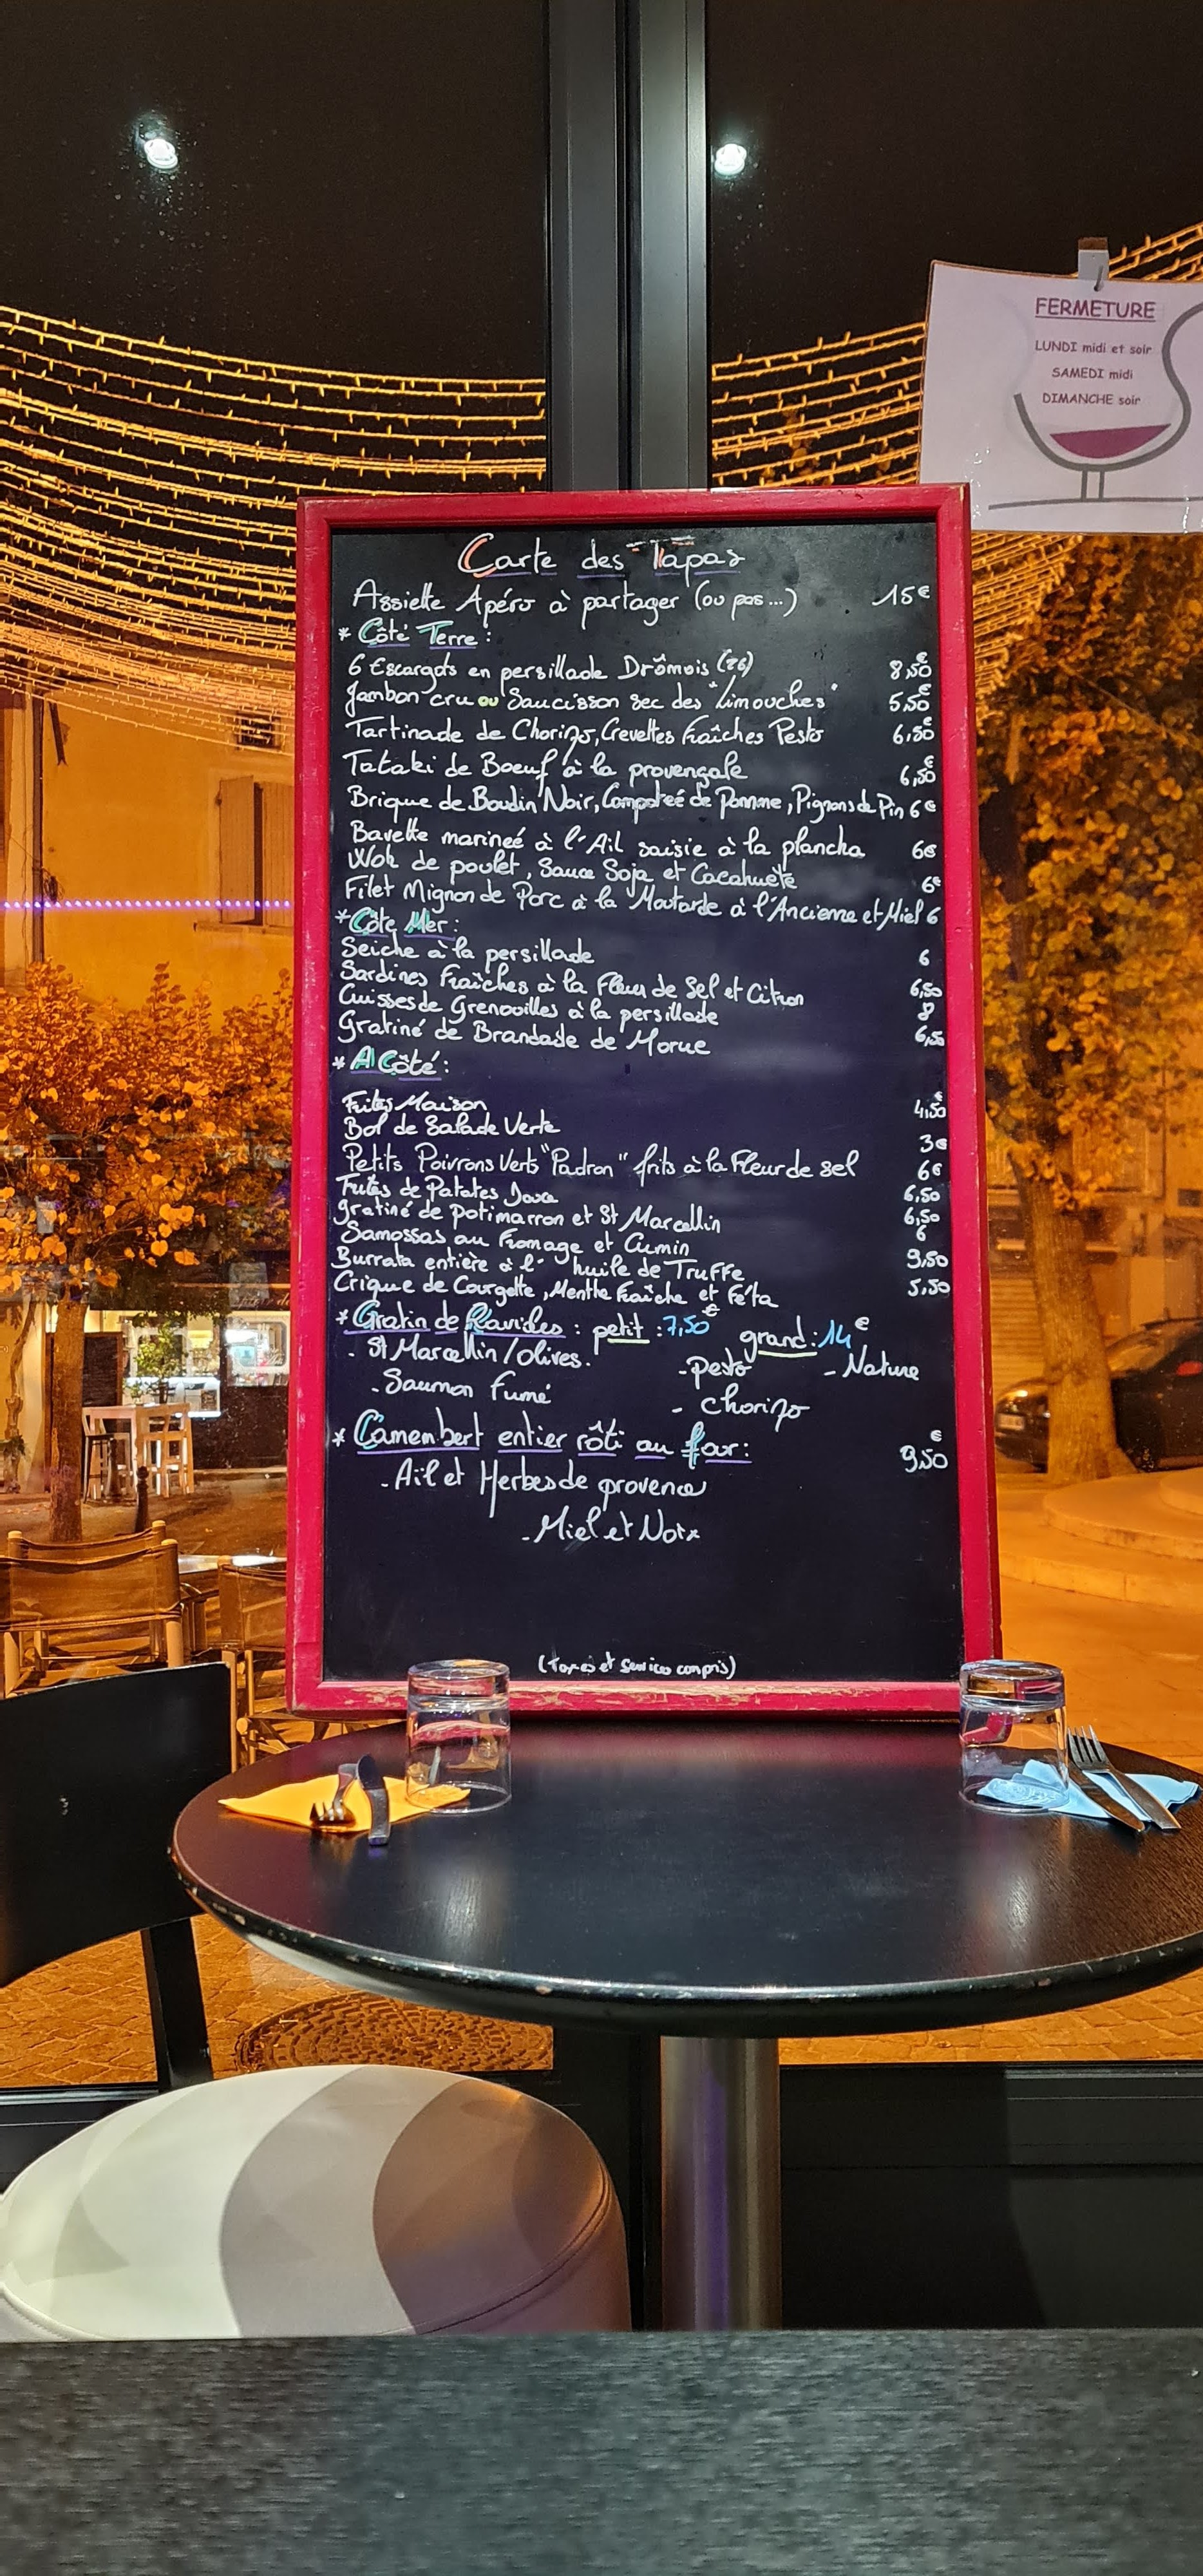 FERMETURE
LUNDI midi et soir
SAMEDI midi
DIMANCHE soir
Carte des Tapas
Assiette Apéro à partager (ou pas...) 15€
* Côté Terre :
6 Escargots en persillade Drômois (26) 8,50€
Jambon cru ou Saucisson sec des "Limouches" 5,50€
Tartinade de Chorizo, Crevettes Fraîches Pesto 6,50€
Tataki de Boeuf à la provençale 6,50€
Brique de Boudin Noir, Compoteé de Pomme, Pignons de Pin 6€
Bavette marineé à l'Ail saisie à la plancha 6€
Wok de poulet, Sauce Soja et Cacahuète 6€
Filet Mignon de Porc à la Moutarde à l'Ancienne et Miel 6
* Côte Mer :
Seiche à la persillade 6
Sardines Fraîches à la Fleur de Sel et Citron 6,50
Cuisses de Grenouilles à la persillade 8
Gratiné de Brandade de Morue 6,50
* A Côté :
Frites Maison 4,50€
Bol de Salade Verte 3€
Petits Poivrons Verts "Padron" frits à la Fleur de sel 6€
Frites de Patates Douce 6,50
Gratiné de potimarron et St Marcellin 6,50
Samossas au Fromage et Cumin 6
Burrata entière à l'huile de Truffe 9,50
Crique de Courgette, Menthe Fraîche et Féta 5,50
* Gratin de Ravioles : petit : 7,50€ grand : 14€
- St Marcellin/Olives. - Pesto - Nature
- Saumon Fumé - Chorizo
* Camembert entier rôti au four : 9,50€
- Ail et Herbes de provence
- Miel et Noix
(Taxes et Services compris)